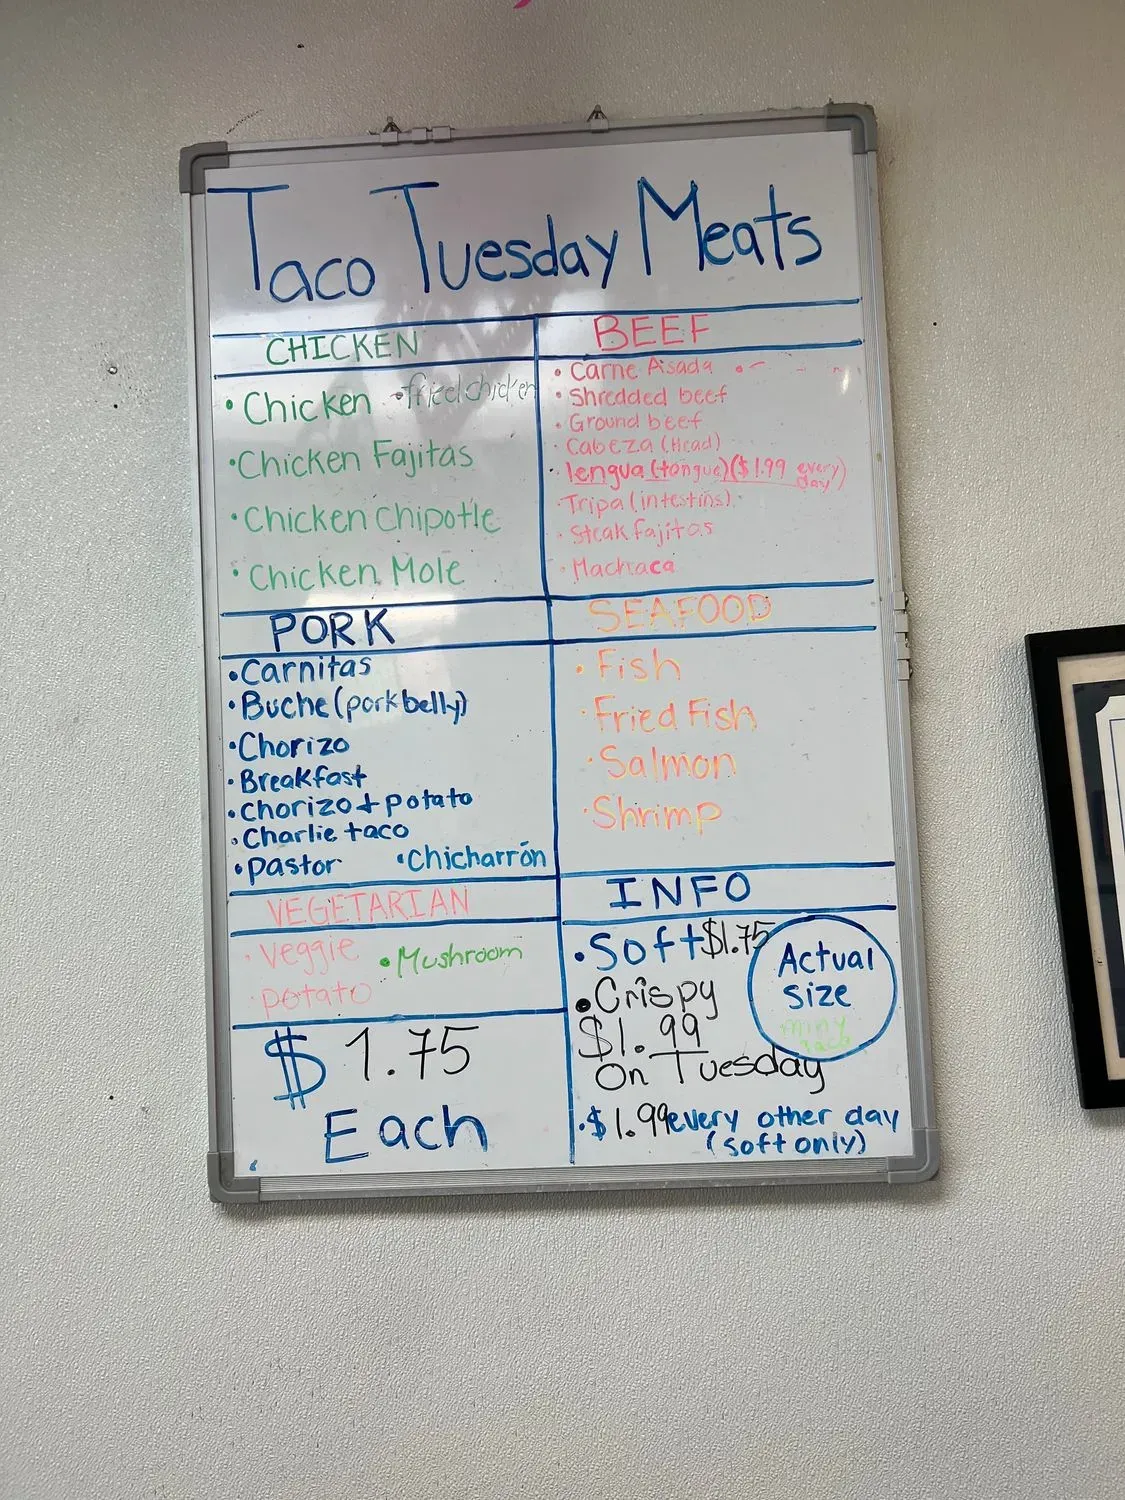 Taco Tuesday Meats
CHICKEN
• Chicken • fried chicken
• Chicken Fajitas
• Chicken Chipotle
• Chicken Mole
BEEF
• Carne Asada
• Shredded beef
• Ground beef
Cabeza (Head)
• lengua (tongue) ($1.99 every day)
• Tripa (intestins)
• Steak fajitas
• Machaca
PORK
• Carnitas
• Buche (pork belly)
• Chorizo
• Breakfast
• Chorizo + potato
• Charlie taco
• pastor • Chicharrón
SEAFOOD
• Fish
• Fried Fish
• Salmon
• Shrimp
VEGETARIAN
• Veggie • Mushroom
• potato
$1.75
Each
INFO
• Soft $1.75
• Crispy
$1.99
On Tuesday
• $1.99 every other day
(soft only)
Actual
size
miny
taco